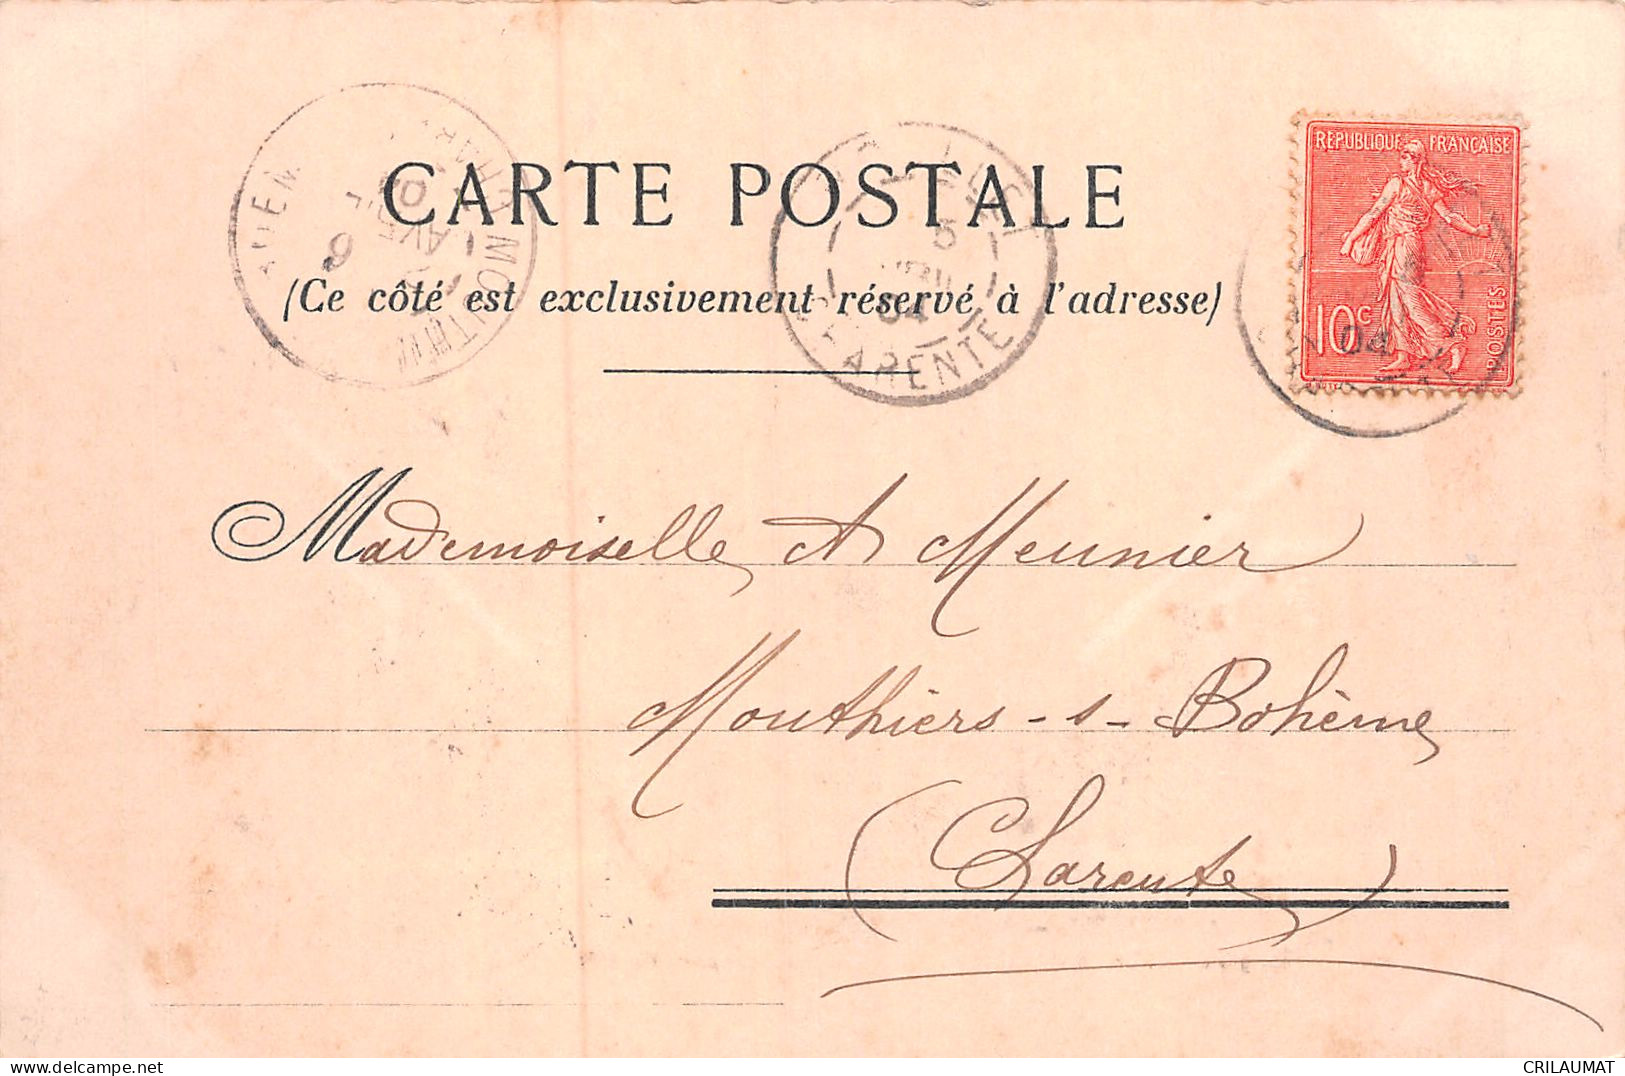 RÉPUBLIQUE FRANÇAISE
10c
POSTES
CARTE POSTALE
(Ce côté est exclusivement réservé à l'adresse)
5
04
CHARENTE
04
6
Mademoiselle A Meunier
Mouthiers-s-Bohème
(Charente)
CRILAUMAT